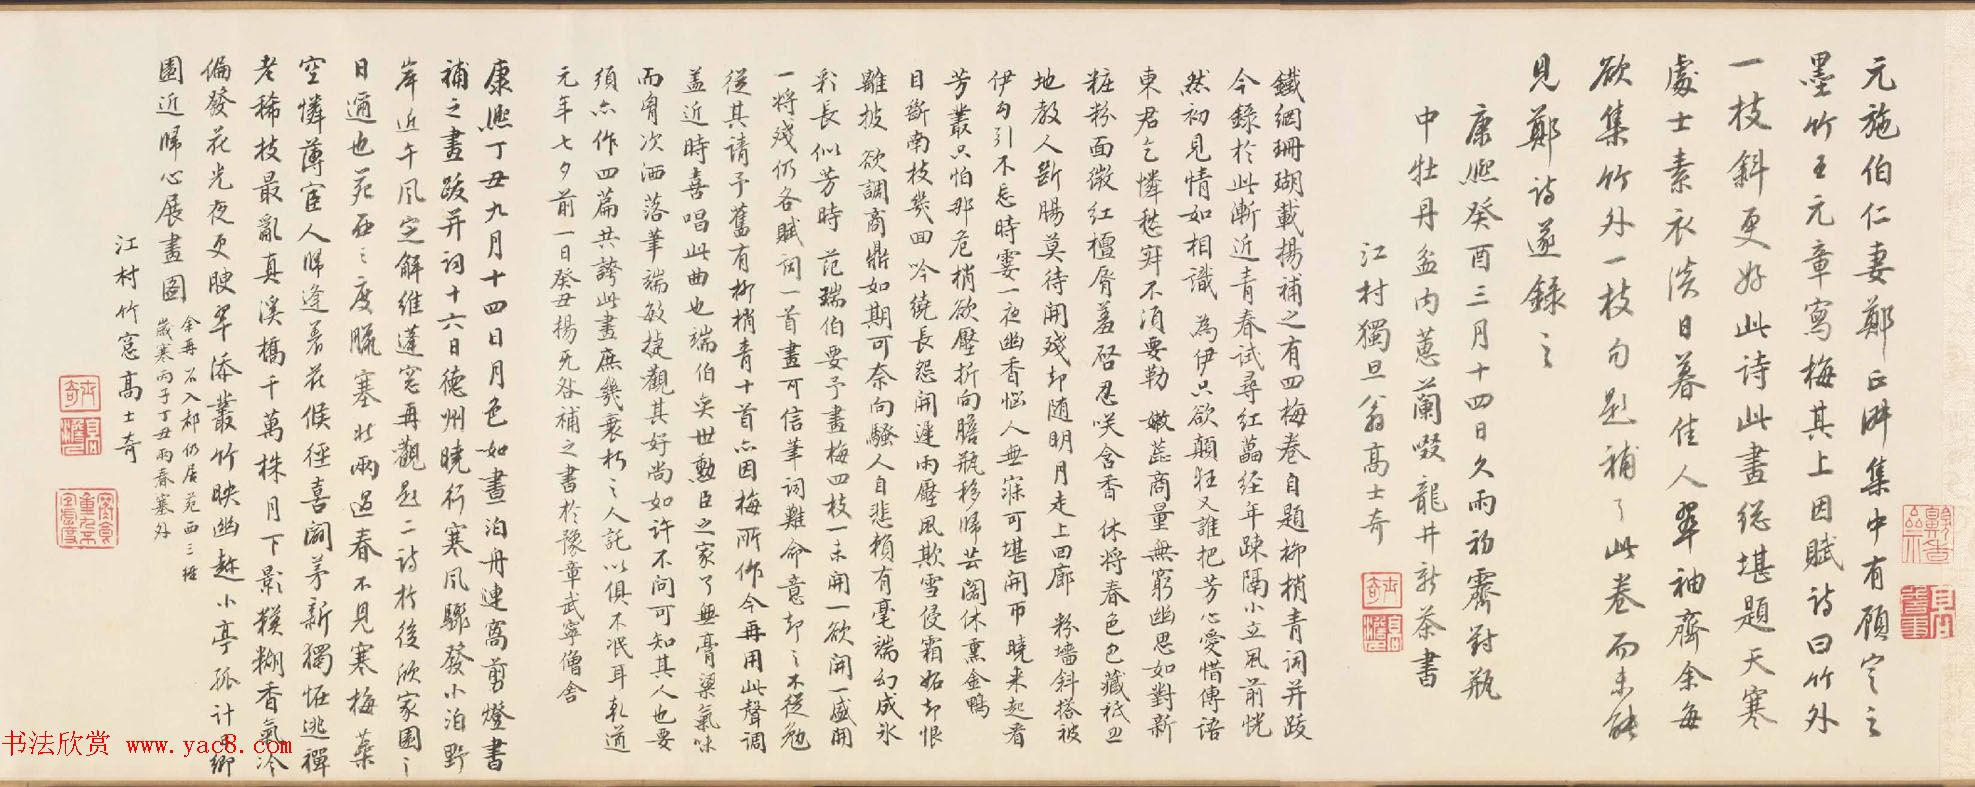 元施伯仁妻鄭氏𣅿集中有顧定之
墨竹王元章寫梅其上因賦詩曰竹外
一枝斜更好此詩此畫總堪題天寒
處士素衣淡日暮佳人翠袖齊余每
欲集竹外一枝句題補之此卷而未能
見鄭詩遂錄之
康熙癸酉三月十四日久雨初霽對瓶
中牡丹盆內蕙蘭啜龍井新茶書
江村獨旦翁高士奇
鐵網珊瑚載揚補之有四梅卷自題柳梢青詞并跋
今錄於此漸近青春試尋紅蓓經年疎隔小立風前恍
然初見情如相識為伊只欲顛狂又誰把芳心愛惜傳語
東君乞憐愁寂不須要勒嫩蕊商量無窮幽思如對新
粧粉面微紅檀脣羞啓忍笑含香休將春色包藏抵死
地教人斷腸莫待開殘却隨明月走上回廊粉墻斜搭被
伊勾引不忘時霎一夜幽香惱人無寐可堪開匝曉來起看
芳叢只怕那危梢欲壓折向膽瓶移歸芸閣休熏金鴨
目斷南枝幾回吟繞長怨開遲雨壓風欺雪侵霜妬却恨
離披欲調商鼎如期可奈向騷人自悲賴有毫端幻成冰
彩長似芳時范端伯要予畫梅四枝一未開一欲開一盛開
一將殘仍各賦詞一首畫可信筆詞難命意却之不從勉
從其請予舊有柳梢青十首亦因梅所作今再用此聲調
蓋近時喜唱此曲也端伯奕世勳臣之家了無膏粱氣味
而胷次洒落筆端敏捷觀其好尚如許不問可知其人也要
須亦作四篇共誇此畫庶幾衰朽之人託以俱不泯耳乾道
元年七夕前一日癸丑揚无咎補之書於豫章武寧僧舍
康熙丁丑九月十四日月色如晝泊舟連窩剪燈書
補之畫跋并詞十六日德州曉行寒風驟發小泊野
岸近午風定解維蓬窓再觀題二詩於後欣家園之
日邇也苑西三度臘塞北兩逈春不見寒梅蘂
空憐薄宦人歸逢著花候徑喜闢茅新獨恠逃禪
老稀枝最亂真溪橋千萬株月下影模糊香氣冷
偏發花光夜更腴翠添叢竹映幽趂小亭孤計日鄉
園近歸心展畫圖
余再召入都仍居苑西三經
歲寒丙子丁丑兩春塞外
江村竹窓高士奇
书法欣赏 www.yac8.com